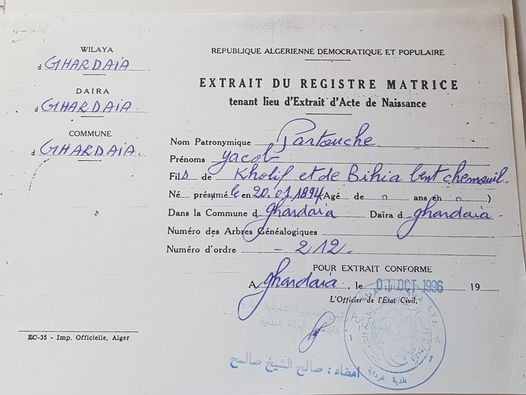 WILAYA
d GHARDAIA
DAIRA
d GHARDAIA
COMMUNE
d GHARDAIA
REPUBLIQUE ALGERIENNE DEMOCRATIQUE ET POPULAIRE
EXTRAIT DU REGISTRE MATRICE
tenant lieu d'Extrait d'Acte de Naissance
Nom Patronymique Partouche
Prénoms Yacob
Fils de Kholif et de Bihia bent chemouil.
Né présumé le en 20.01.1894 (Agé de ans en )
Dans la Commune d ghardaia Daïra d ghardaia
Numéro des Arbres Généalogiques
Numéro d'ordre - 212 -
POUR EXTRAIT CONFORME
A ghardaia, le 01 OCT 1996 19
L'Officier de l'Etat Civil,
امضاء : صالح الشيخ صالح
EC-35 - Imp. Officielle, Alger